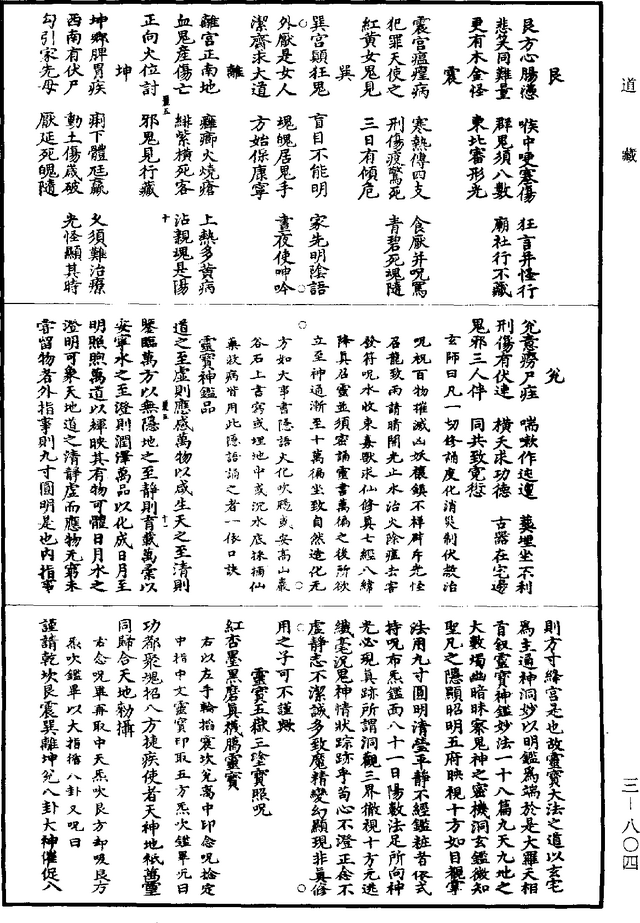 道藏
艮
艮方心腸懑　喉中哽塞傷　狂言并怪行
悲笑同難量　群鬼須八數　廟社行不藏
更有木金怪　東北審形光
震
震宮瘟瘽病　寒熱傳四支　食厭并呪罵
犯罪天使之　刑傷疫驚死　青碧死塊隨
紅黃女鬼見　三日有傾危
巽
巽宮顛狂鬼　盲目不能明　家先明陰語
外厭是女人　塊魄居鬼手　晝夜使呻吟
潔齋求大道　方始保康寧
離
離宮正南地　癰癤火燒瘡　上熱多黃病
血鬼產傷亡　緋紫橫死客　沾親塊是陽
正向火位討　邪鬼見行藏
坤
坤鄉脾胃疾　痢下體尫羸　久須難治療
西南有伏尸　動土傷歲破　光怪顯其時
勾引家先母　厭延死魄隨
兌
兌意勞尸疰　喘嗽作迍邅　墓埋坐不利
刑傷有伏連　橫夭求功德　古器在宅邊
鬼邪三人伴　同共致寃愆
玄師曰凡一切修誦度化消災制伏救治
呪祝百物摧滅凶妖禳鎮不祥辟斥光怪
召龍致雨請晴開光止水治火除瘟去害
發符呪水收束毒獸求仙修真七經八緯
降真召靈並須密誦靈書萬徧之後所欲
立至神通漸至十萬徧坐致自然造化无
方如大事書隱語火化吹颺或安高山巖
谷石上書寫或埋地中或沉水底誅捕仙
藥救病皆用此隱語誦之者一依口訣
靈寶神鑑品
道之至虛則應感萬物以咸生天之至清則
鑒臨萬方以無隱地之至靜則育載萬彙以
安寧水之至澄則潤澤萬品以化成日月至
明照煦萬道以輝映其有物可體日月水之
澄明可象天地道之清靜虛而應物无窮未
嘗留物者外指事則九寸圓明是也內指事
則方寸絳宮是也故靈寶大法之道以玄宅
為主通神洞妙以明鑑為端於是大羅天相
首叙靈寶神鑑妙法一十八篇九天九地之
大數燭幽暗昧察鬼神之密機洞玄鑑微知
聖凡之隱顯昭明五府映視十方如目觀掌
法用九寸圓明清瑩平靜不經鑑粧者依式
持呪布炁鑑面八十一日陽數法足所向神
光必現真跡所謂洞觀三界徹視十方无逃
纖毫況鬼神情狀踪跡乎苟心不澄正念不
虛靜志不潔誠多致魔精變幻顯現非真修
用之子可不謹歟
靈寶五嶽三塗寶照呪
紅杏墨黑磨真機騰靈寶
右以左手輪掐震坎兌離中印念呪捻定
中指中文靈寶印取五方炁吹鑑畢咒曰
功都聚塊招八方捷疾使者天神地祇萬靈
同歸合天地勑攝
右念呪畢再取中天炁吹艮方却吸艮方
炁吹鑑畢以大指掐八卦又呪曰
謹請乾坎艮震巽離坤兌八卦大神催促八
三—八〇四